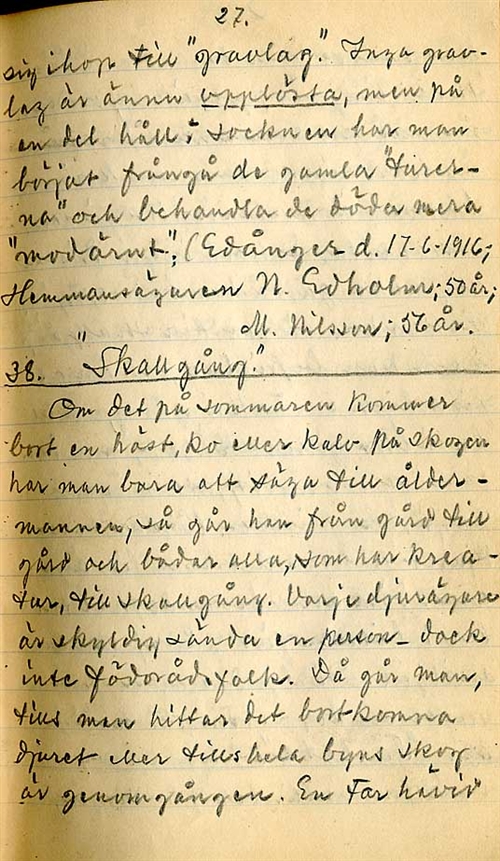 27.
sig ihop till "gravlag". Inga grav-
lag är ännu upplösta, men på
en del håll i socknen har man
börjat frångå de gamla "turer-
na" och behandla de döda mera
"modärnt"; (Edånger d. 17-6-1916;
Hemmansägaren N. Edholm; 50 år;
M. Nilsson; 56 år.
38. "Skallgång."
Om det på sommaren kommer
bort en häst, ko eller kalv på skogen
har man bara att säga till ålder-
mannen, så går han från gård till
gård och bådar alla, som har krea-
tur, till skallgång. Varje djurägare
är skyldig sända en person - dock
inte födorådsfolk. Då går man,
tills man hittar det bortkomna
djuret eller tills hela byns skog
är genomgången. En Tar